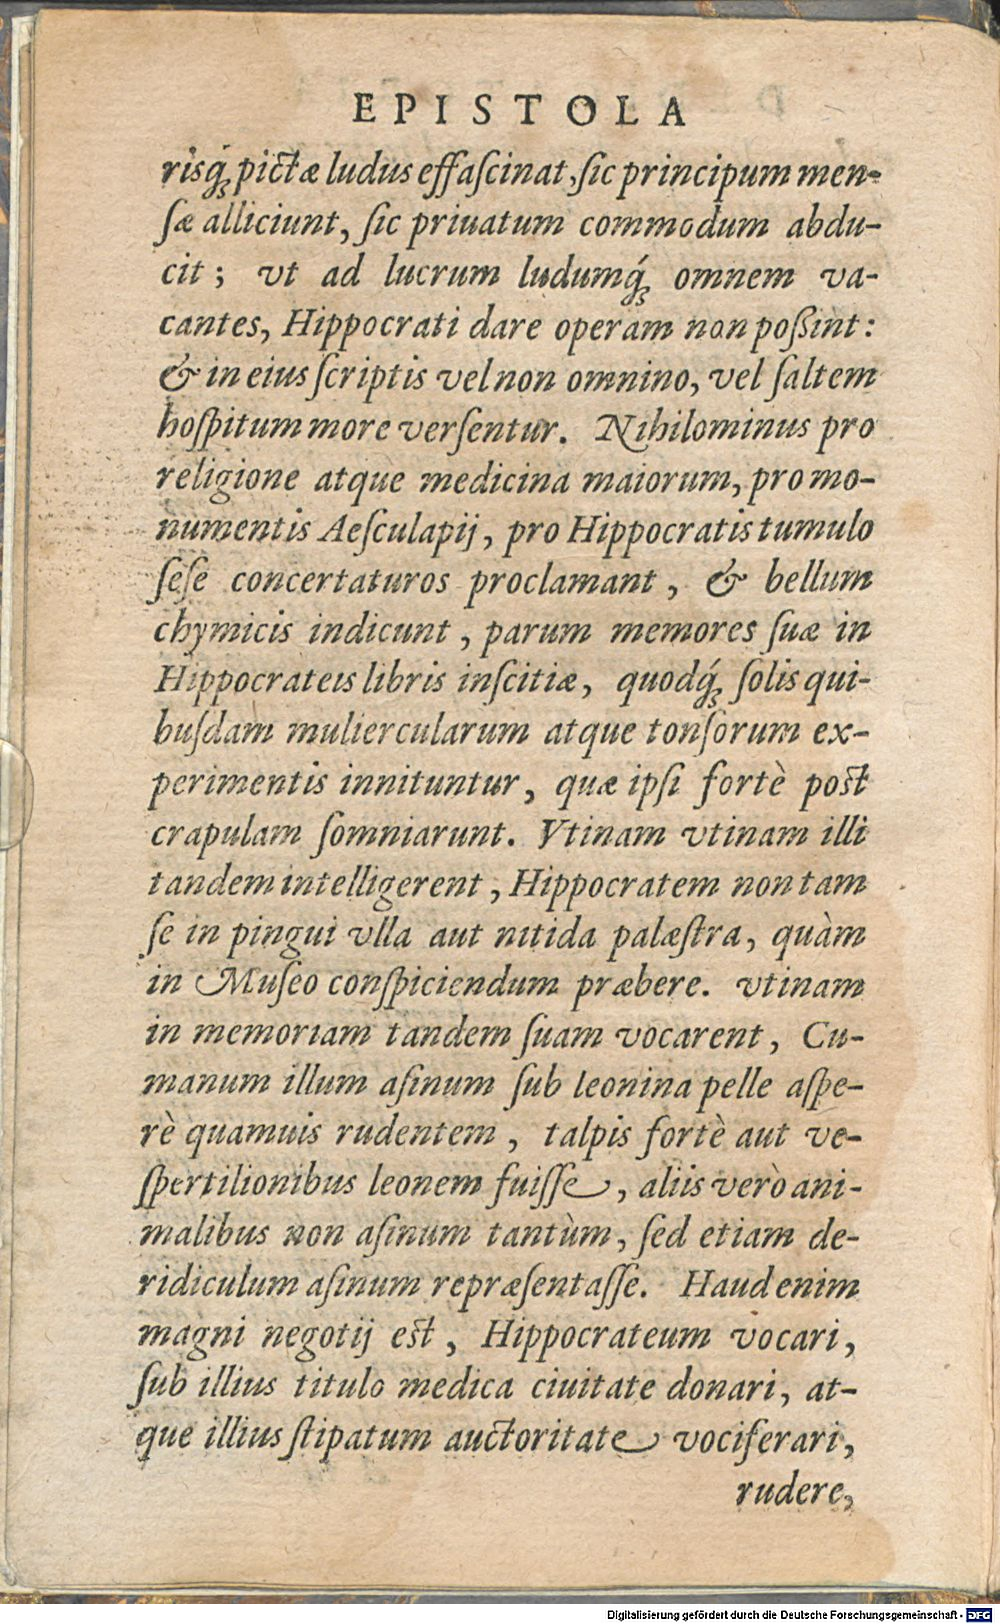 EPISTOLA
risq́ꝫ pictæ ludus effaſcinat, ſic principum men-
ſæ alliciunt, ſic priuatum commodum abdu-
cit; vt ad lucrum ludumq́ꝫ omnem va-
cantes, Hippocrati dare operam non poßint:
& in eius ſcriptis vel non omnino, vel ſaltem
hoſpitum more verſentur. Nihilominus pro
religione atque medicina maiorum, pro mo-
numentis Aeſculapij, pro Hippocratis tumulo
ſeſe concertaturos proclamant, & bellum
chymicis indicunt, parum memores ſuæ in
Hippocrateis libris inſcitiæ, quodq́ꝫ ſolis qui-
buſdam muliercularum atque tonſorum ex-
perimentis innituntur, quæ ipſi fortè poſt
crapulam ſomniarunt. Vtinam vtinam illi
tandem intelligerent, Hippocratem non tam
ſe in pingui vlla aut nitida palæſtra, quàm
in Muſeo conſpiciendum præbere. vtinam
in memoriam tandem ſuam vocarent, Cu-
manum illum aſinum ſub leonina pelle aſpe-
rè quamuis rudentem, talpis fortè aut ve-
ſpertilionibus leonem fuiſſe, aliis verò ani-
malibus non aſinum tantùm, ſed etiam de-
ridiculum aſinum repræſentaſſe. Haud enim
magni negotij eſt, Hippocrateum vocari,
ſub illius titulo medica ciuitate donari, at-
que illius ſtipatum auctoritate vociferari,
rudere,
Digitalisierung gefördert durch die Deutsche Forschungsgemeinschaft - DFG